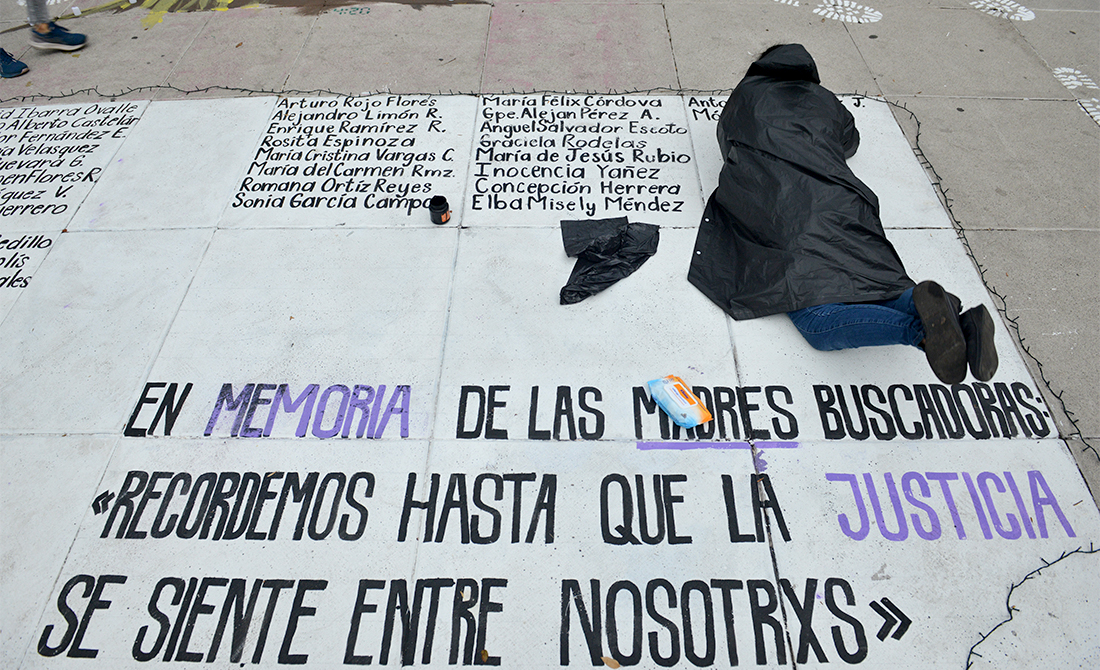 Ibarra Ovalle
Alberto Castelán
Fernández E.
Velasquez
Guevara G.
Flores R.
V.
Herrero
Arturo Rojo Flores
Alejandro Limón R.
Enrique Ramírez R.
Rosita Espinoza
María Cristina Vargas C.
María del Carmen Rmz.
Romana Ortíz Reyes
Sonia García Campo
María Félix Córdova
Gpe. Alejan Pérez A.
Anguel Salvador Escoto
Graciela Rodelas
María de Jesús Rubio
Inocencia Yañez
Concepción Herrera
Elba Misely Méndez
J.
EN MEMORIA DE LAS MADRES BUSCADORAS:
«RECORDEMOS HASTA QUE LA JUSTICIA
SE SIENTE ENTRE NOSOTRXS»